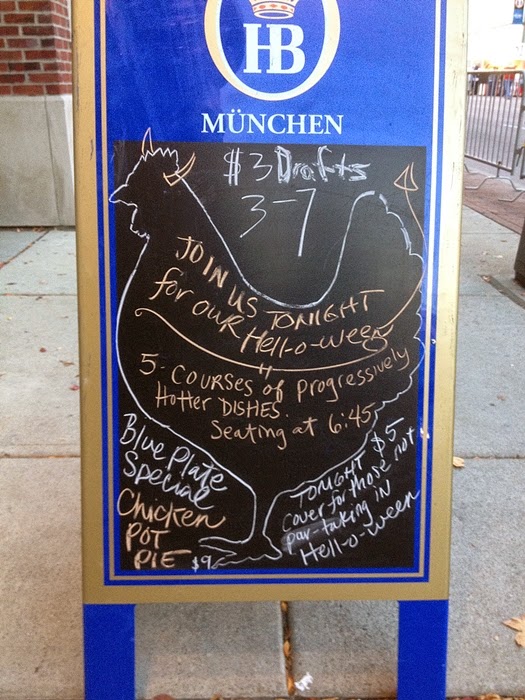 HB
MÜNCHEN
$3 Drafts
3-7
JOIN US TONIGHT
for our Hell-o-ween
5-COURSES of progressively
Hotter DISHES.
Seating at 6:45
Blue Plate
Special
Chicken
POT
PIE $9
TONIGHT $5
cover for those not
par-taking in
Hell-o-ween